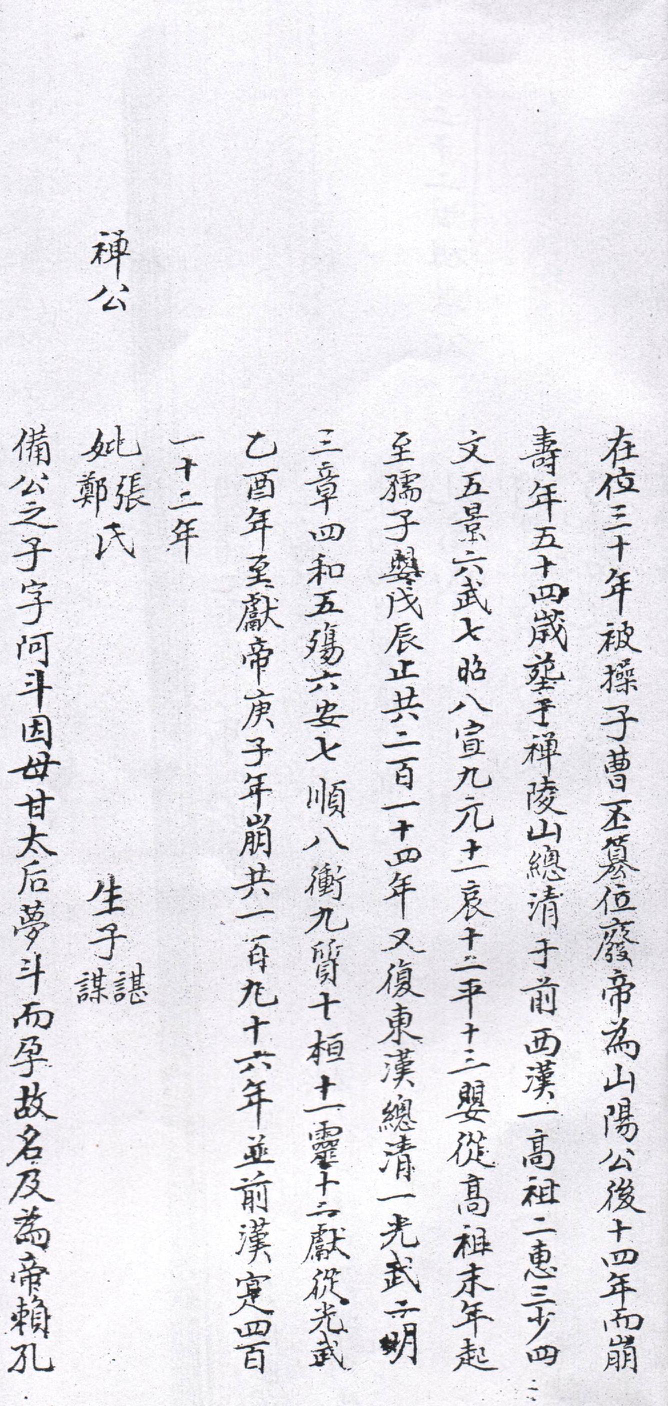 在位三十年被操子曹丕篡位廢帝為山陽公後十四年而崩
壽年五十四歲塟于禅陵山總清于前西漢一高祖二惠三少四
文五景六武七昭八宣九元十一哀十二平十三嬰從高祖末年起
至孺子嬰戊辰止共二百一十四年又復東漢總清一光武二明
三章四和五殤六安七順八衝九質十桓十一靈十二獻從光武
乙酉年至獻帝庚子年崩共一百九十六年並前漢寔四百
一十二年
禅公
妣張鄭氏
生子諶謀
備公之子字阿斗因母甘太后夢斗而孕故名及為帝賴孔